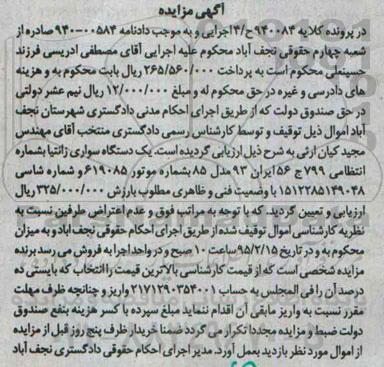 آگهی مزایده
در پرونده کلاسه ۹۴۰۰۸۴ح/۴اجرایی و به موجب دادنامه ۰۰۵۸۴-۹۴۰ صادره از
شعبه چهارم حقوقی نجف آباد محکوم علیه اجرایی آقای مصطفی ادریسی فرزند
حسینعلی محکوم است به پرداخت ۲۶۵/۵۶۰/۰۰۰ ریال بابت محکوم به و هزینه
های دادرسی و غیره در حق محکوم له و مبلغ ۱۲/۰۰۰/۰۰۰ ریال نیم عشر دولتی
در حق صندوق دولت که از طریق اجرای احکام مدنی دادگستری شهرستان نجف
آباد اموال ذیل توقیف و توسط کارشناس رسمی دادگستری منتخب آقای مهندس
مجید کیان ارثی به شرح ذیل ارزیابی گردیده است. یک دستگاه سواری زانتیا بشماره
انتظامی ۷۹۹ج ۵۶ ایران ۹۳ مدل ۸۵ بشماره موتور ۶۱۹۰۸۵ و شماره شاسی
۱۵۱۲۲۸۵۱۴۹۰۴۸ با وضعیت فنی و ظاهری مطلوب بارزش ۳۲۵/۰۰۰/۰۰۰ ریال
ارزیابی و تعیین گردید. که با توجه به مراتب فوق و عدم اعتراض طرفین نسبت به
نظریه کارشناسی اموال توقیف شده از طریق اجرای احکام حقوقی نجف آباد و به میزان
محکوم به و در تاریخ ۹۵/۲/۱۵ ساعت ۱۰ صبح و در واحد اجرا به فروش می رسد برنده
مزایده شخصی است که از قیمت کارشناسی بالاترین قیمت را انتخاب که بایستی ده
درصد آن را فی المجلس به حساب ۲۱۷۱۲۹۰۳۵۴۰۰۱ واریز و چنانچه ظرف مهلت
مقرر نسبت به واریز مابقی آن اقدام ننماید مبلغ سپرده با کسر هزینه بنفع صندوق
دولت ضبط و مزایده مجددا تکرار می گردد ضمنا خریدار ظرف پنج روز قبل از مزایده
از اموال مورد نظر بازدید بعمل آورد. مدیر اجرای احکام حقوقی دادگستری نجف آباد